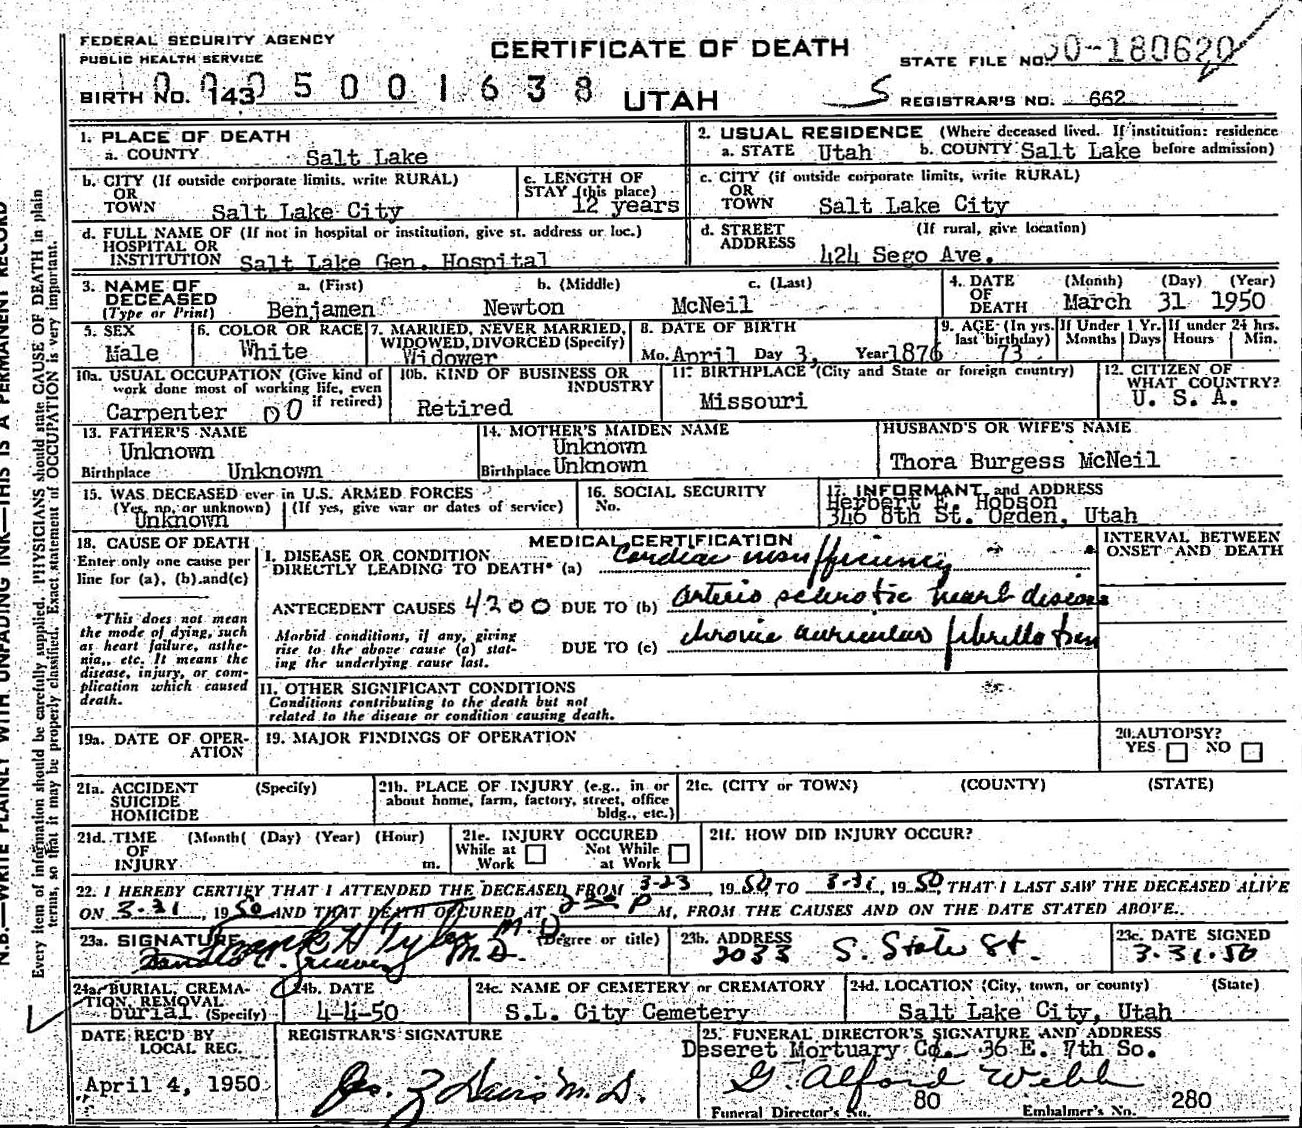 FEDERAL SECURITY AGENCY
PUBLIC HEALTH SERVICE
CERTIFICATE OF DEATH
STATE FILE NO. 50-180620
BIRTH NO. 143
0005001638
UTAH
REGISTRAR'S NO. 662
1. PLACE OF DEATH
a. COUNTY Salt Lake
2. USUAL RESIDENCE (Where deceased lived. If institution: residence before admission)
a. STATE Utah b. COUNTY Salt Lake
b. CITY (If outside corporate limits, write RURAL)
OR
TOWN Salt Lake City
c. LENGTH OF
STAY (this place)
12 years
c. CITY (if outside corporate limits, write RURAL)
OR
TOWN Salt Lake City
d. FULL NAME OF (If not in hospital or institution, give st. address or loc.)
HOSPITAL OR
INSTITUTION Salt Lake Gen. Hospital
d. STREET (If rural, give location)
ADDRESS 424 Sego Ave.
3. NAME OF DECEASED (Type or Print)
a. (First) b. (Middle) c. (Last)
Benjamen Newton McNeil
4. DATE OF DEATH (Month) (Day) (Year)
March 31 1950
5. SEX
Male
6. COLOR OR RACE
White
7. MARRIED, NEVER MARRIED, WIDOWED, DIVORCED (Specify)
Widower
8. DATE OF BIRTH
Mo. April Day 3, Year 1876
9. AGE (In yrs. last birthday)
73
If Under 1 Yr. Months Days
If under 24 hrs. Hours Min.
10a. USUAL OCCUPATION (Give kind of work done most of working life, even if retired)
Carpenter 00
10b. KIND OF BUSINESS OR INDUSTRY
Retired
11. BIRTHPLACE (City and State or foreign country)
Missouri
12. CITIZEN OF WHAT COUNTRY?
U. S. A.
13. FATHER'S NAME
Unknown
Birthplace Unknown
14. MOTHER'S MAIDEN NAME
Unknown
Birthplace Unknown
HUSBAND'S OR WIFE'S NAME
Thora Burgess McNeil
15. WAS DECEASED ever in U.S. ARMED FORCES
(Yes, no, or unknown) (If yes, give war or dates of service)
Unknown
16. SOCIAL SECURITY
No.
17. INFORMANT and ADDRESS
Herbert E. Hobson
346 8th St. Ogden, Utah
18. CAUSE OF DEATH
Enter only one cause per
line for (a), (b) and (c)
*This does not mean
the mode of dying, such
as heart failure, asthe-
nia, etc. It means the
disease, injury, or com-
plication which caused
death.
MEDICAL CERTIFICATION
I. DISEASE OR CONDITION
DIRECTLY LEADING TO DEATH* (a) Cardiac insufficiency
ANTECEDENT CAUSES 4200 DUE TO (b) arterio sclerotic heart disease
Morbid conditions, if any, giving
rise to the above cause (a) stat-
ing the underlying cause last.
DUE TO (c) chronic auricular fibrillation
INTERVAL BETWEEN
ONSET AND DEATH
II. OTHER SIGNIFICANT CONDITIONS
Conditions contributing to the death but not
related to the disease or condition causing death.
19a. DATE OF OPER-
ATION
19. MAJOR FINDINGS OF OPERATION
20. AUTOPSY?
YES NO
21a. ACCIDENT (Specify)
SUICIDE
HOMICIDE
21b. PLACE OF INJURY (e.g., in or
about home, farm, factory, street, office
bldg., etc.)
21c. (CITY or TOWN) (COUNTY) (STATE)
21d. TIME (Month( (Day) (Year) (Hour)
OF
INJURY m.
21e. INJURY OCCURED
While at Work Not While at Work
21f. HOW DID INJURY OCCUR?
22. I HEREBY CERTIFY THAT I ATTENDED THE DECEASED FROM 3-23, 1950 TO 3-31, 1950 THAT I LAST SAW THE DECEASED ALIVE
ON 3-31, 1950 AND THAT DEATH OCCURED AT P M, FROM THE CAUSES AND ON THE DATE STATED ABOVE.
23a. SIGNATURE (Degree or title)
Frank H Tyler M.D.
M.D.
23b. ADDRESS
2033 S. State St.
23c. DATE SIGNED
3-31-50
24a. BURIAL, CREMA-
TION, REMOVAL
(Specify) burial
24b. DATE
4-4-50
24c. NAME OF CEMETERY or CREMATORY
S.L. City Cemetery
24d. LOCATION (City, town, or county) (State)
Salt Lake City, Utah
DATE REC'D BY
LOCAL REG.
April 4, 1950
REGISTRAR'S SIGNATURE
Jos. Z Davis M.D.
25. FUNERAL DIRECTOR'S SIGNATURE AND ADDRESS
Deseret Mortuary Co. 36 E. 7th So.
G. Alford Webb
Funeral Director's No. 80 Embalmer's No. 280
N.B.—WRITE PLAINLY WITH UNFADING INK—THIS IS A PERMANENT RECORD
Every item of information should be carefully supplied. PHYSICIANS should state CAUSE OF DEATH in plain
terms, so that it may be properly classified. Exact statement of OCCUPATION is very important.